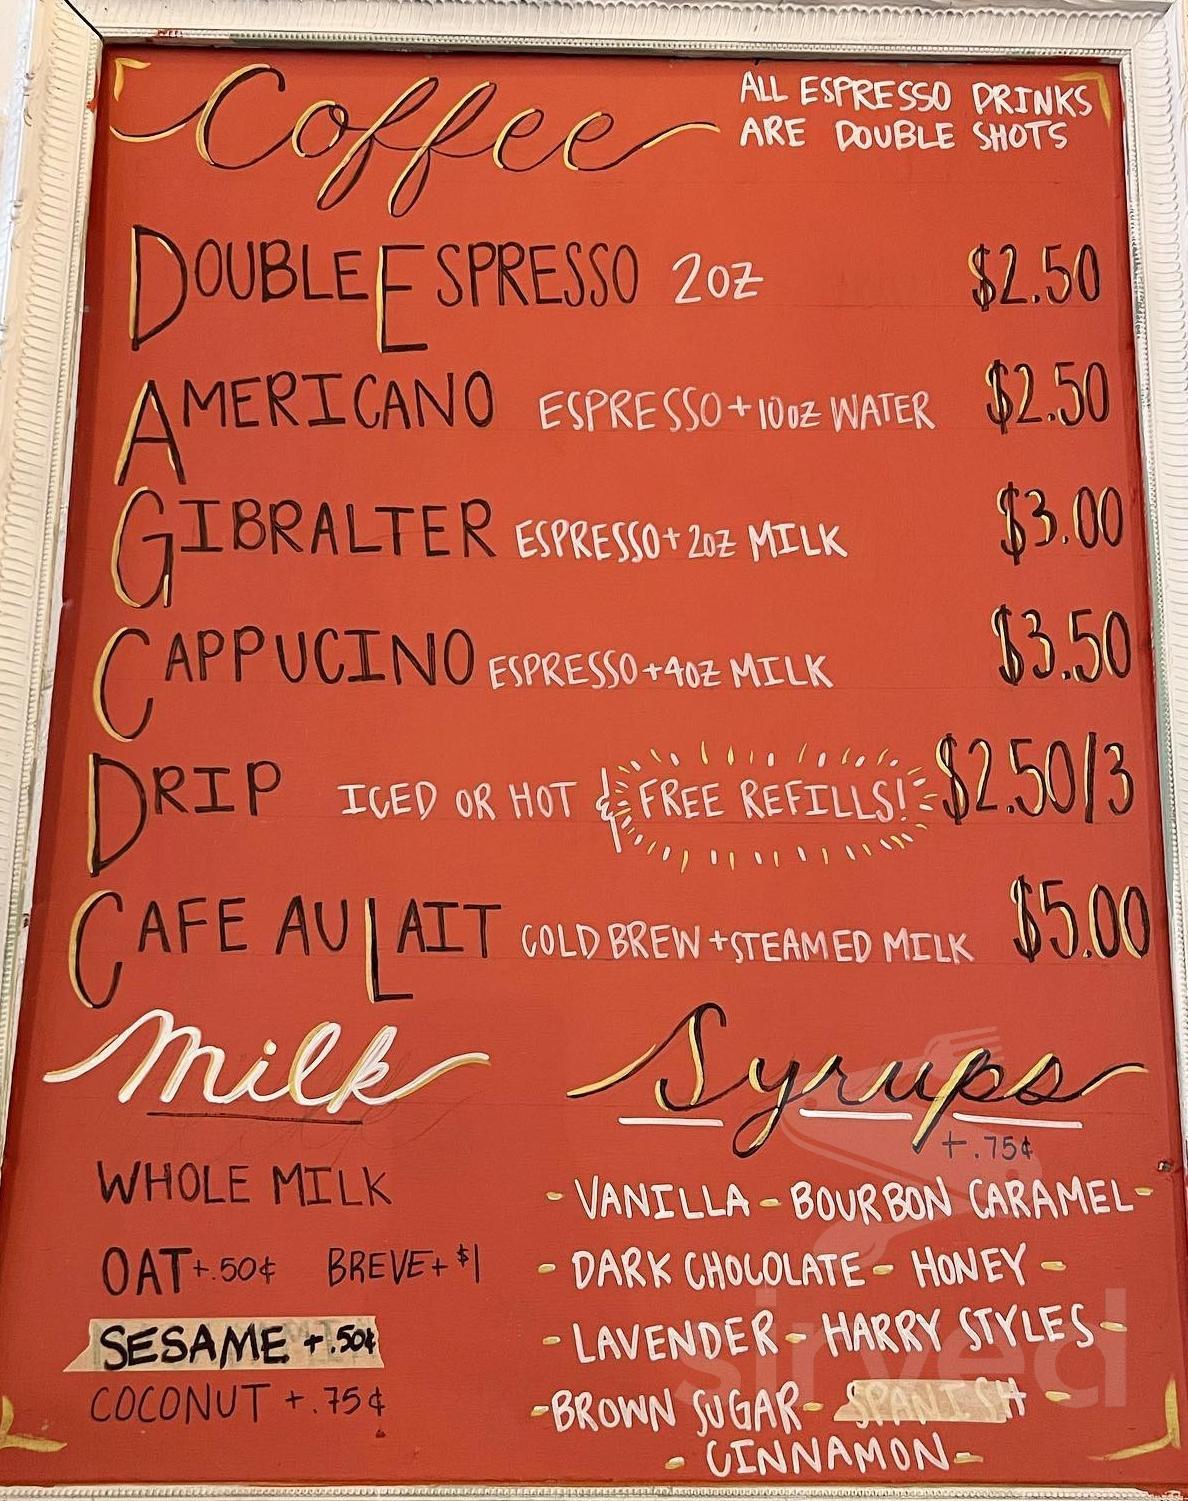 Coffee
ALL ESPRESSO DRINKS
ARE DOUBLE SHOTS
DOUBLE ESPRESSO 2oz $2.50
AMERICANO ESPRESSO+10oz WATER $2.50
GIBRALTER ESPRESSO+2oz MILK $3.00
CAPPUCINO ESPRESSO+4oz MILK $3.50
DRIP ICED OR HOT & FREE REFILLS! $2.50/3
CAFE AU LAIT COLD BREW+STEAMED MILK $5.00
Milk
WHOLE MILK
OAT+.50¢ BREVE+$1
SESAME +.50¢
COCONUT +.75¢
Syrups
+.75¢
- VANILLA - BOURBON CARAMEL -
- DARK CHOCOLATE - HONEY -
- LAVENDER - HARRY STYLES -
- BROWN SUGAR - SPANISH -
- CINNAMON -
sirved